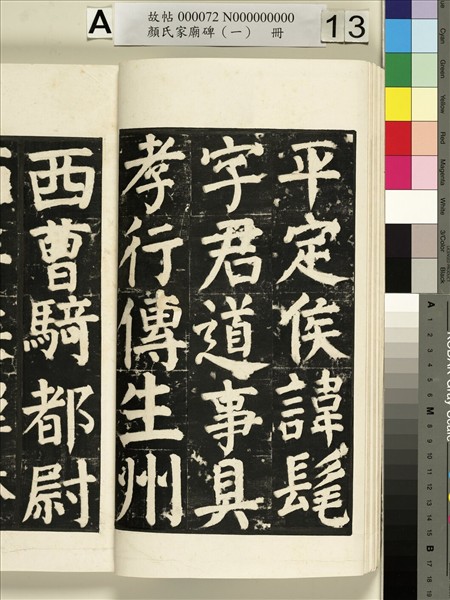 A
故帖 000072 N000000000
顏氏家廟碑（一） 冊
13
平定侯諱髦
字君道事具
孝行傳生州
西曹騎都尉
Cyan
Green
Yellow
Red
Magenta
White
3/Color
Black
A
1
2
3
4
5
6
M
8
9
10
11
12
13
14
15
B
17
18
19